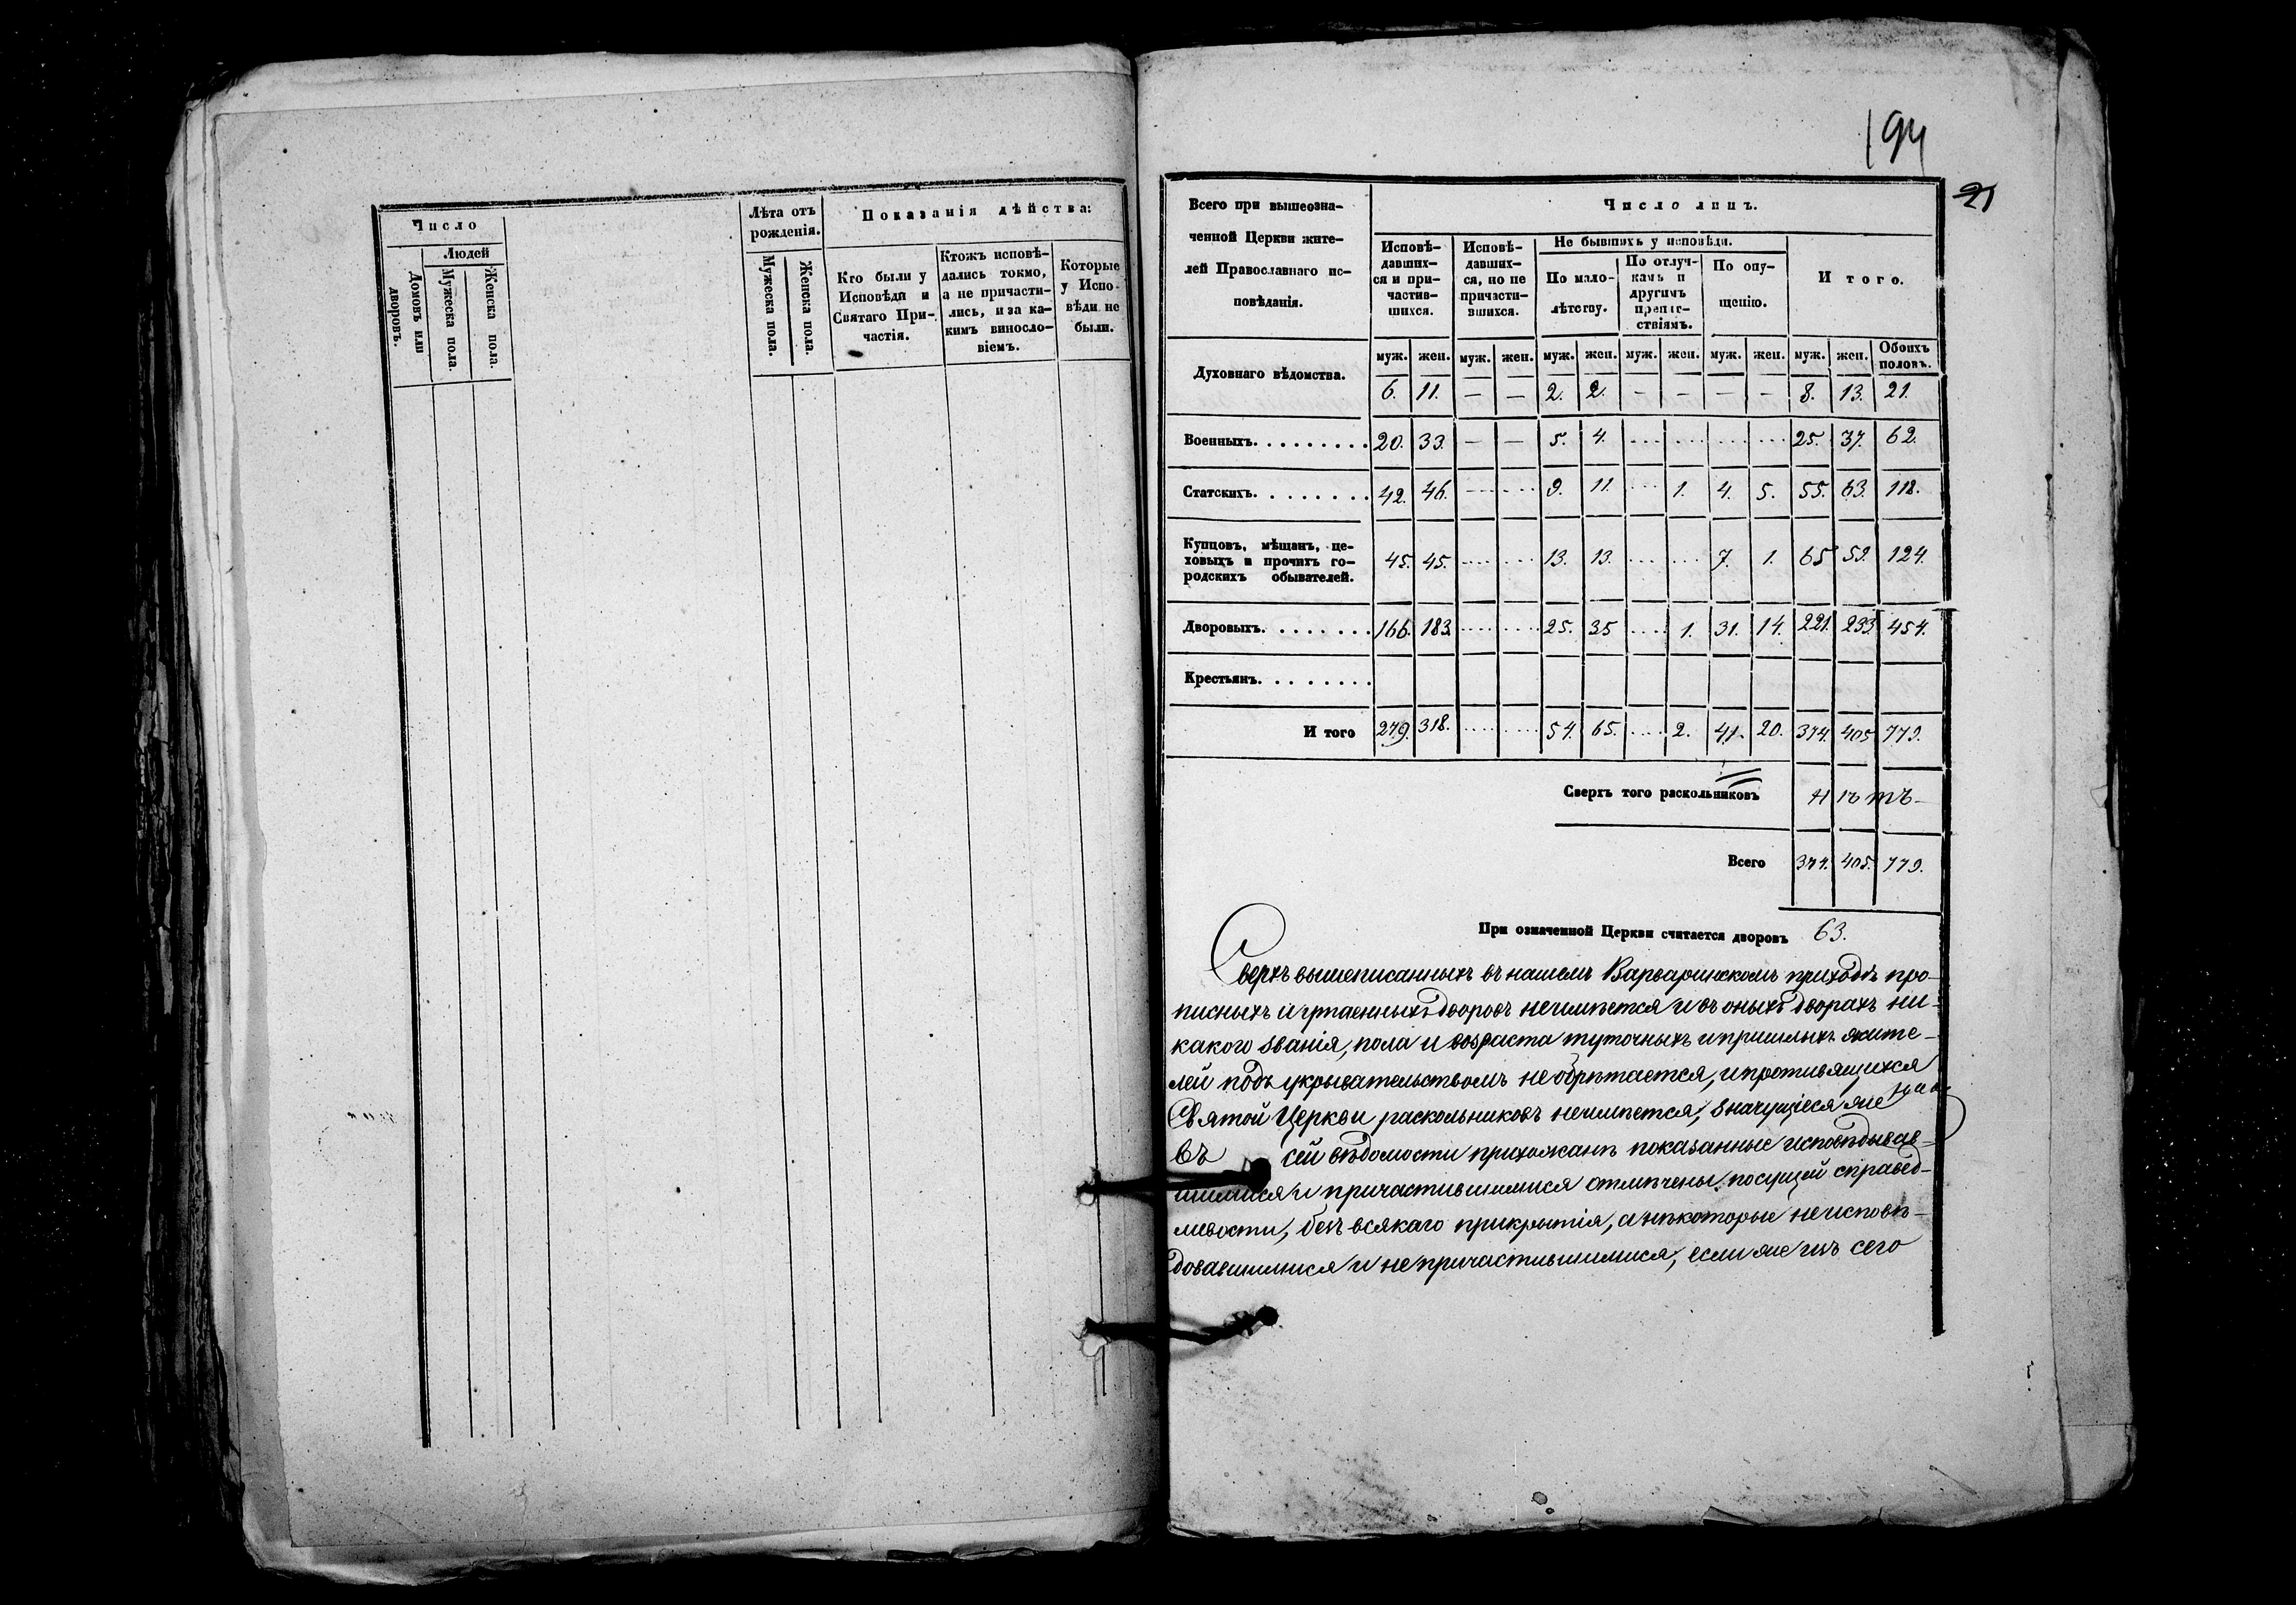 Число
Людей
Домовъ или дворовъ.
Мужеска пола.
Женска пола.
Лѣта отъ рожденія.
Мужеска пола.
Женска пола.
Показанія дѣйства:
Кто были у Исповѣди и Святаго Причастія.
Ктожъ исповѣдались токмо, а не причастились, и за какимъ винословіемъ.
Которые у Исповѣди не были.
194
21
Всего при вышеозначенной Церкви жителей Православнаго исповѣданія.
Число лицъ.
Исповѣдавшихся и причастившихся.
Исповѣдавшихся, но не причастившихся.
Не бывшихъ у исповѣди.
По малолѣтству.
По отлучкамъ и другимъ препятствіямъ.
По опущенію.
Итого.
муж. жен. муж. жен. муж. жен. муж. жен. муж. жен. муж. жен. Обоихъ половъ.
Духовнаго вѣдомства. 6. 11. — — 2. 2. — — — — 8. 13. 21.
Военныхъ. 20. 33. — — 5. 4. .... .... .... .... 25. 37. 62.
Статскихъ. 42. 46. .... .... 9. 11. .... 1. 4. 5. 55. 63. 118.
Купцовъ, мѣщанъ, цеховыхъ и прочихъ городскихъ обывателей. 45. 45. .... .... 13. 13. .... .... 7. 1. 65 59. 124.
Дворовыхъ. 166. 183. .... .... 25. 35 .... 1. 31. 14. 221. 233. 454.
Крестьянъ.
Итого 279. 318. .... .... 54. 65. .... 2. 41. 20. 374. 405 779.
Сверхъ того раскольниковъ нѣтъ
Всего 374. 405. 779.
При означенной Церкви считается дворовъ 63.
Сверхъ вышеписанныхъ въ нашемъ Варваринскомъ приходѣ про-
писныхъ и утаенныхъ дворовъ неимѣется и въ оныхъ дворахъ ни-
какого званія, пола и возраста туточныхъ и пришлыхъ жите-
лей подъ укрывательствомъ не обрѣтается, и противящихся
Святой Церкви раскольниковъ неимѣется, значущіеся же
въ сей вѣдомости прихожанъ показанные исповѣдывав-
шимися и причастившимися отмѣчены по сущей справед-
ливости, безъ всякаго прикрытія, а нѣкоторые неисповѣ-
довавшимися и непричастившимися, если же изъ сего